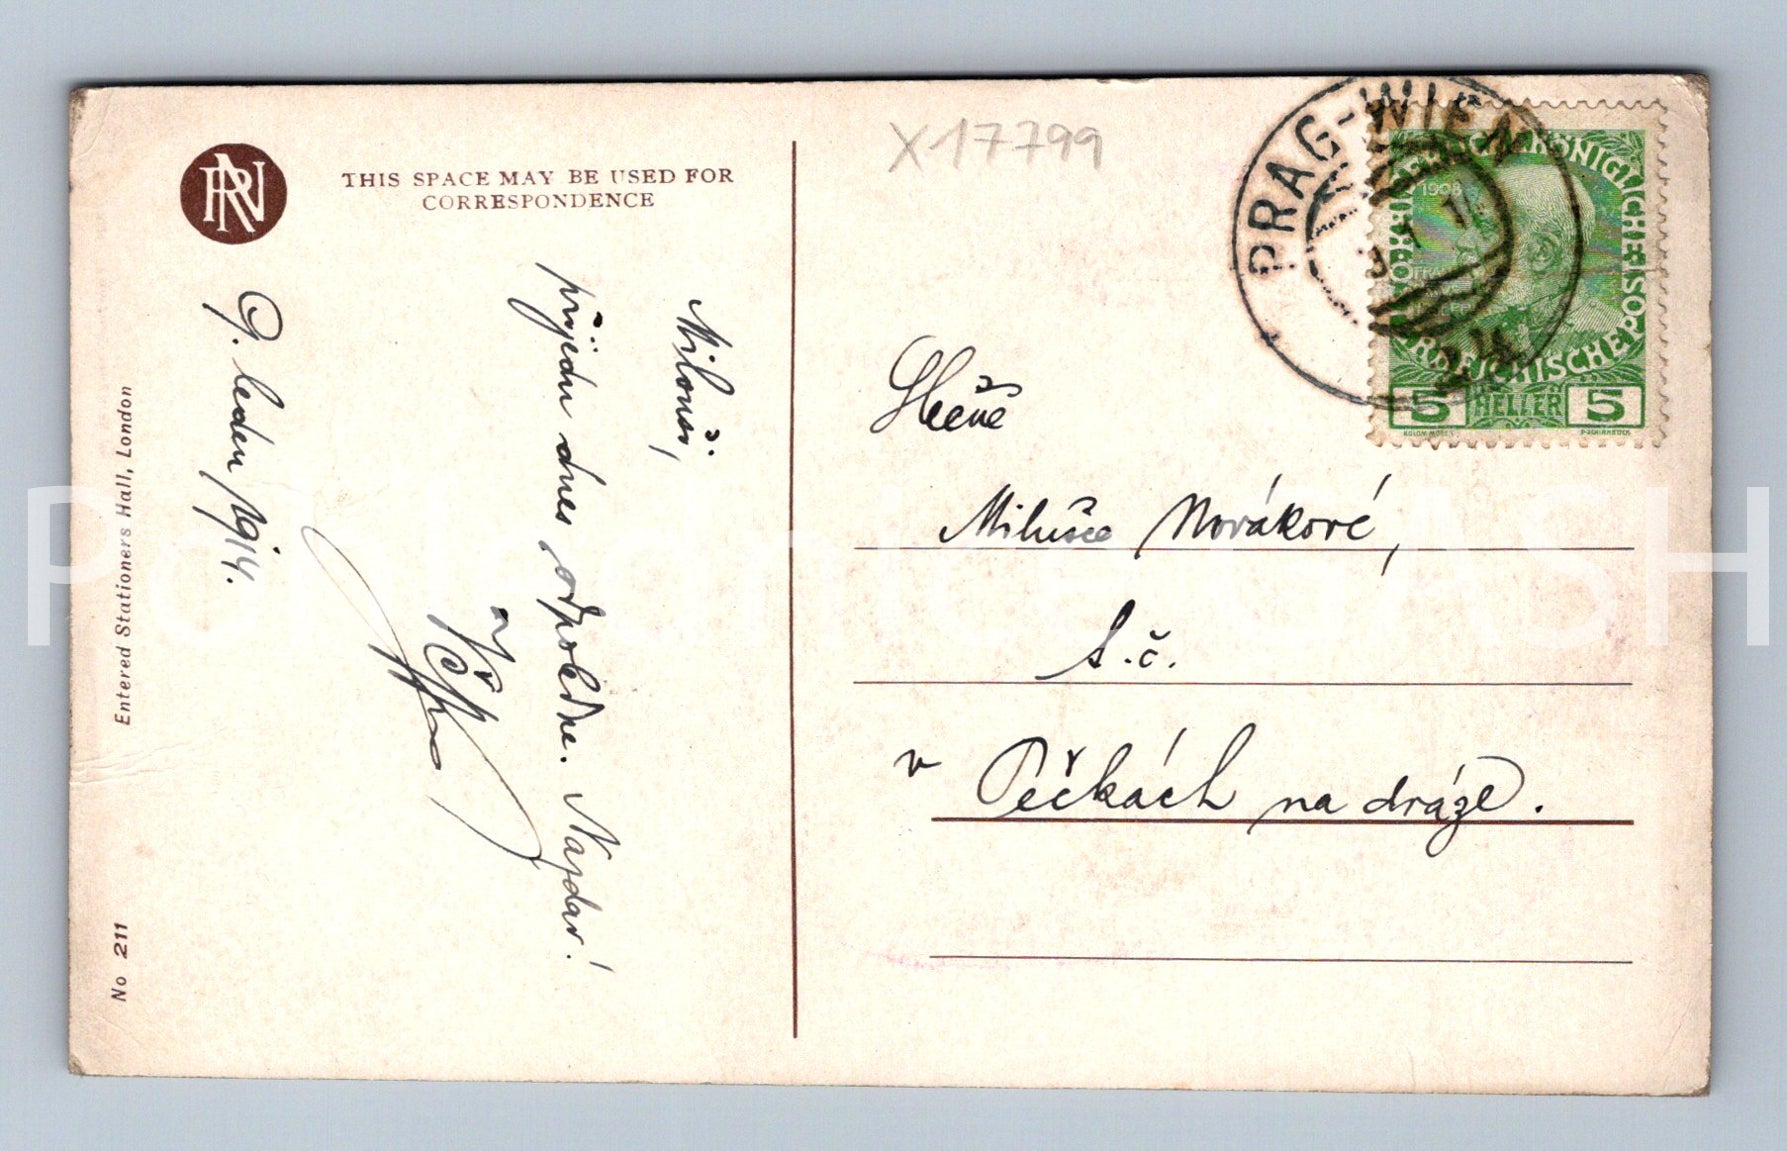 THIS SPACE MAY BE USED FOR
CORRESPONDENCE
X17799
PRAG-WIEN
1908
KAISERLICHE KÖNIGLICHE ÖSTERREICHISCHE POST
5 HELLER 5
9. leden 1914.
Milouši,
přijedu dnes odpoledne. Nazdar!
Slečně
Milušce Novákové,
s.č.
v Pečkách na dráze.
Entered Stationers Hall, London
No 211